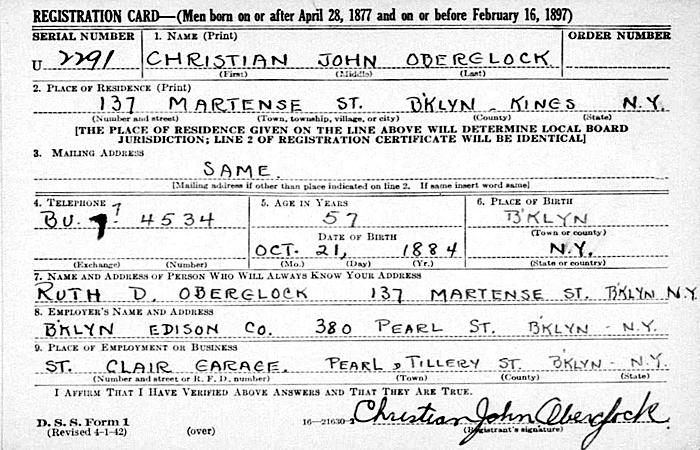 REGISTRATION CARD—(Men born on or after April 28, 1877 and on or before February 16, 1897)
SERIAL NUMBER 1. NAME (Print) ORDER NUMBER
U 2291 CHRISTIAN JOHN OBERGLOCK
(First) (Middle) (Last)
2. PLACE OF RESIDENCE (Print)
137 MARTENSE ST. B'KLYN - KINGS N.Y.
(Number and street) (Town, township, village, or city) (County) (State)
[THE PLACE OF RESIDENCE GIVEN ON THE LINE ABOVE WILL DETERMINE LOCAL BOARD
JURISDICTION; LINE 2 OF REGISTRATION CERTIFICATE WILL BE IDENTICAL]
3. MAILING ADDRESS
SAME.
[Mailing address if other than place indicated on line 2. If same insert word same]
4. TELEPHONE 5. AGE IN YEARS 6. PLACE OF BIRTH
BU. 7? 4534 57 B'KLYN
(Town or county)
DATE OF BIRTH
OCT. 21, 1884 N.Y.
(Exchange) (Number) (Mo.) (Day) (Yr.) (State or country)
7. NAME AND ADDRESS OF PERSON WHO WILL ALWAYS KNOW YOUR ADDRESS
RUTH D. OBERGLOCK 137 MARTENSE ST. B'KLYN N.Y.
8. EMPLOYER'S NAME AND ADDRESS
B'KLYN EDISON CO. 380 PEARL ST. B'KLYN - N.Y.
9. PLACE OF EMPLOYMENT OR BUSINESS
ST. CLAIR GARAGE. PEARL & TILLERY ST B'KLYN - N.Y.
(Number and street or R. F. D. number) (Town) (County) (State)
I AFFIRM THAT I HAVE VERIFIED ABOVE ANSWERS AND THAT THEY ARE TRUE.
D. S. S. Form 1 16—21630-2 Christian John Oberglock
(Revised 4-1-42) (over) (Registrant's signature)